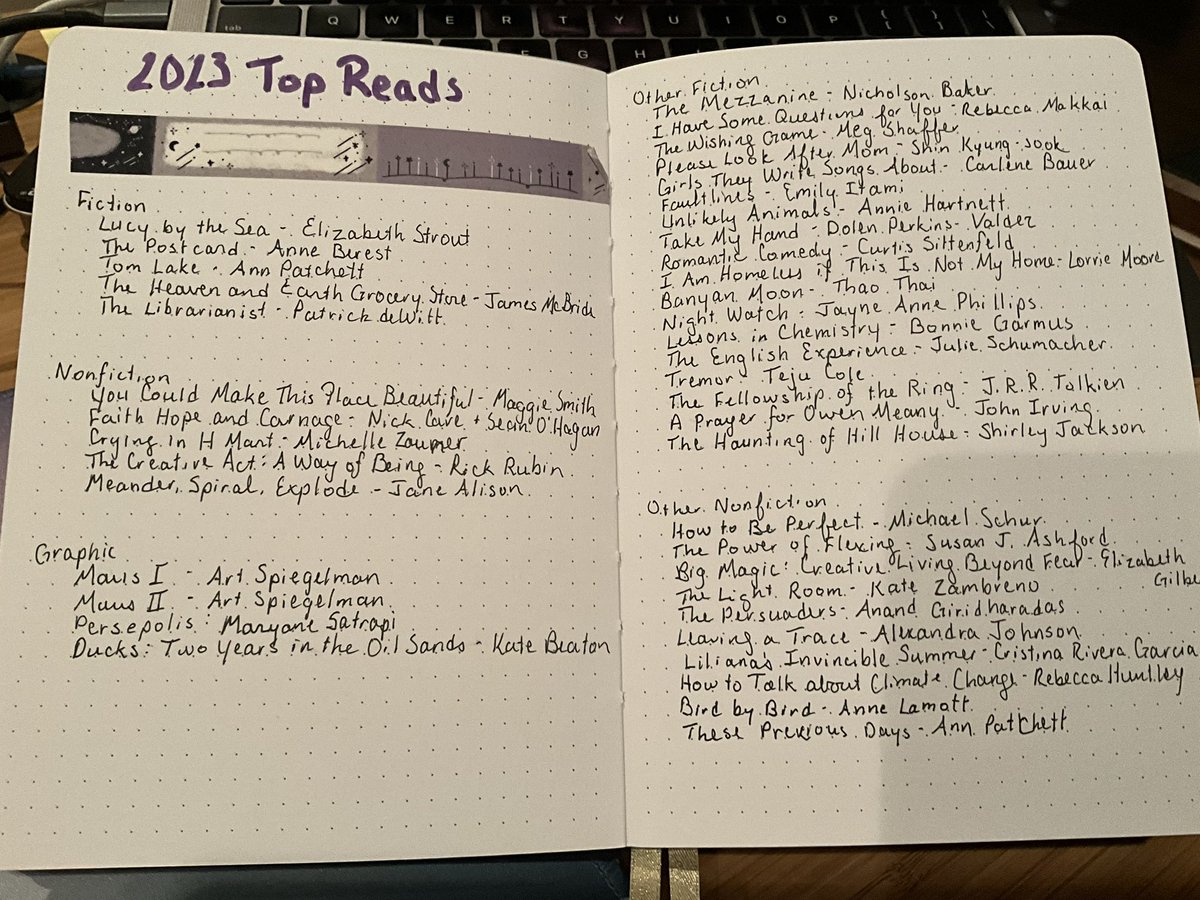 tab
Q W E R T Y U I O P { [ } ]
G H
2023 Top Reads
Fiction
Lucy by the Sea - Elizabeth Strout
The Postcard - Anne Berest
Tom Lake - Ann Patchett
The Heaven and Earth Grocery Store - James McBride
The Librarianist - Patrick deWitt
Nonfiction
You Could Make This Place Beautiful - Maggie Smith
Faith Hope and Carnage - Nick Cave + Seán O'Hagan
Crying in H Mart - Michelle Zauner
The Creative Act: A Way of Being - Rick Rubin
Meander, Spiral, Explode - Jane Alison
Graphic
Maus I - Art Spiegelman
Maus II - Art Spiegelman
Persepolis: Maryane Satrapi
Ducks: Two Years in the Oil Sands - Kate Beaton
Other Fiction
The Mezzanine - Nicholson Baker
I Have Some Questions for You - Rebecca Makkai
The Wishing Game - Meg Shaffer
Please Look After Mom - Shin Kyung-sook
Girls They Write Songs About - Carlene Bauer
Faultlines - Emily Itami
Unlikely Animals - Annie Hartnett
Take My Hand - Dolen Perkins-Valdez
Romantic Comedy - Curtis Sittenfeld
I Am Homeless if This Is Not My Home - Lorrie Moore
Banyan Moon - Thao Thai
Night Watch - Jayne Anne Phillips
Lessons in Chemistry - Bonnie Garmus
The English Experience - Julie Schumacher
Tremor - Teju Cole
The Fellowship of the Ring - J.R.R. Tolkien
A Prayer for Owen Meany - John Irving
The Haunting of Hill House - Shirley Jackson
Other Nonfiction
How to Be Perfect - Michael Schur
The Power of Flexing - Susan J. Ashford
Big Magic: Creative Living Beyond Fear - Elizabeth
Gilbe
The Light Room - Kate Zambreno
The Persuaders - Anand Giridharadas
Leaving a Trace - Alexandra Johnson
Liliana's Invincible Summer - Cristina Rivera Garcia
How to Talk about Climate Change - Rebecca Huntley
Bird by Bird - Anne Lamott
These Precious Days - Ann Patchett